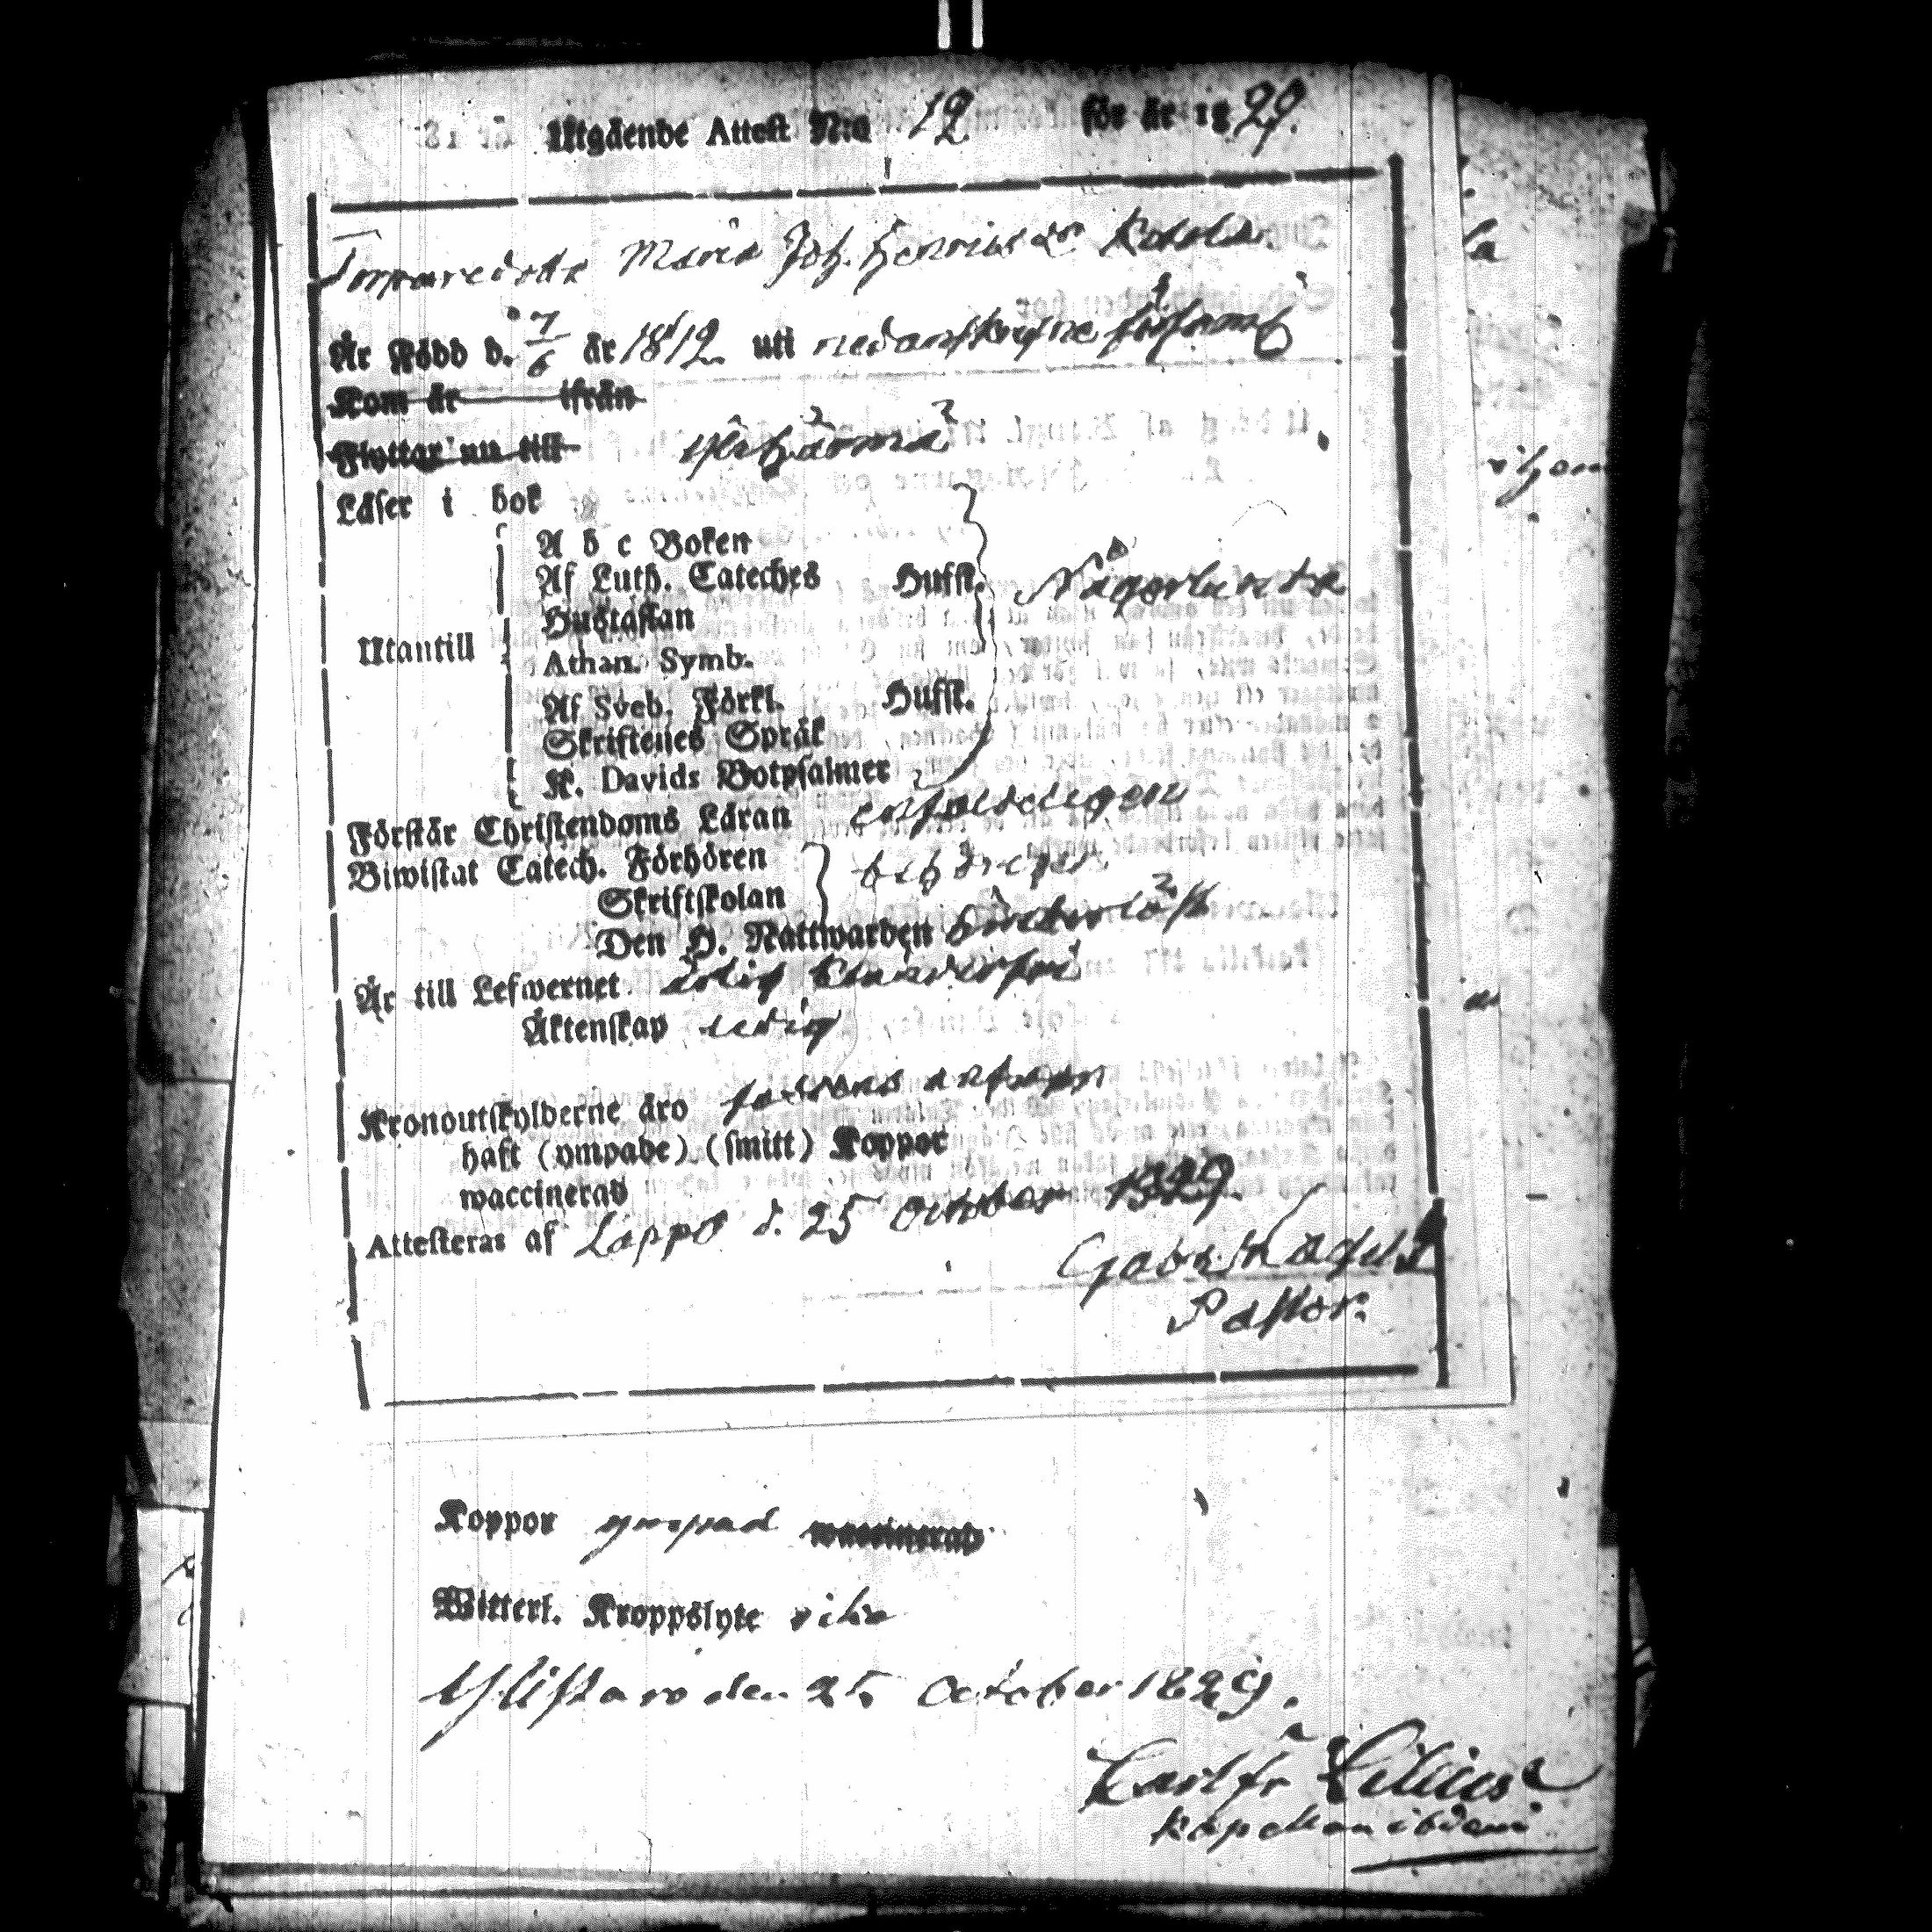 Utgående Attest N:o 12 för år 1829.
Torparedottr Maria Joh. Henriksdr
Är Född d. 7/6 år 1812 uti nedanskrefne församl
Kom år ifrån
Flyttar nu till Ylihärmä
Läser i bok
Utantill
A b c Boken
Af Luth. Cateches Hufst.
Någorlunda
Hustaflan
Athan. Symb.
Af Sveb. Förkl. Hufst.
Skriftenes Språk
K. Davids Botpsalmer
Förstår Christendoms Läran enfaldeligen
Biwistat Catech. Förhören
Skriftskolan
behörigen
Den H. Nattwarden
Är till Lefwernet ärlig
Äktenskap ledig
Kronoutskylderne äro
haft (ympade) (smitt) Koppor
waccinerad
Attesteras af Lappo d. 25 October 1829.
Pastor.
Koppor ympad waccinerad
Witterl. Kroppslyte
Ylistaro den 25 October 1829.
Carl Fr
Kapellan ibdem